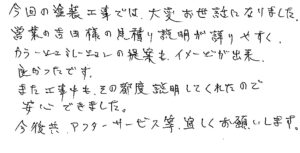 今回の塗装工事では、大変お世話になりました。
営業の吉田様の見積り説明が詳りやすく、
カラーシュミレーションの提案も、イメージが出来、
良かったです。
また工事中も、その都度説明してくれたので
安心できました。
今後共、アフターサービス等、宜しくお願いします。